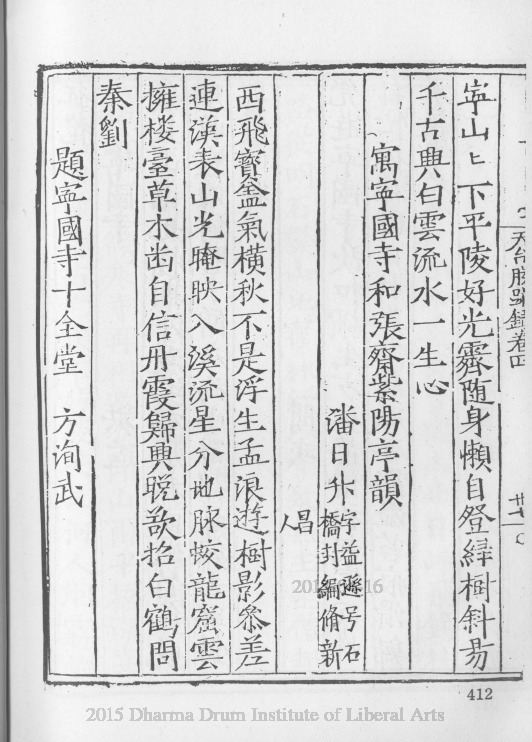 天台勝蹟錄卷四
寕山匕下平陵好光霽随身懶自登繂樹斜昜
千古興白雲流水一生心
寓寕國寺和張齋紫陽亭韻
潘日升字益遜号石橋封編脩新昌人
西飛寶盆氣橫秋不是浮生孟浪遊樹影叅差
連漢表山光晻映入溪流星分地脉蛟龍窟雲
擁楼臺草木幽自信丹霞歸興晩欲招白鶴問
秦劉
題寕國寺十全堂 方洵武
412
2015 Dharma Drum Institute of Liberal Arts